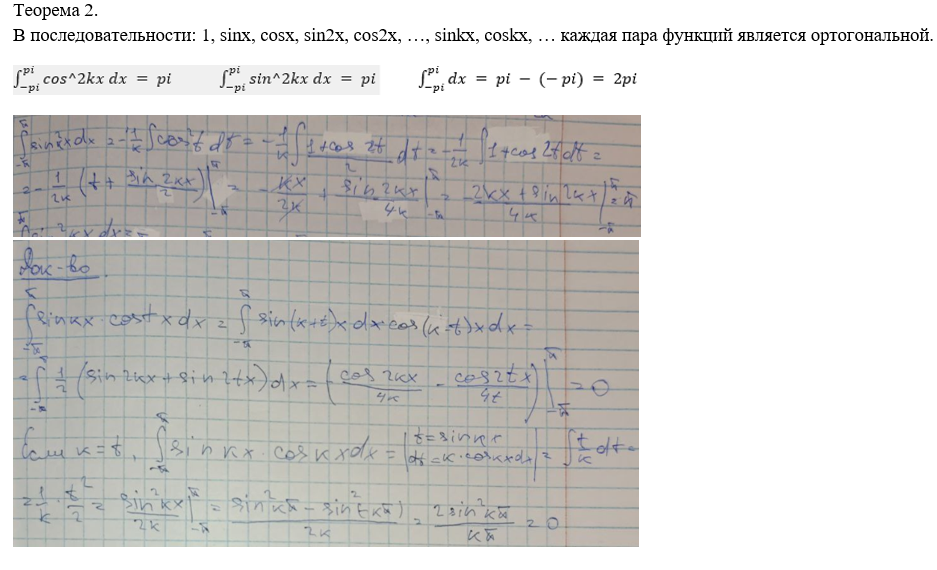 Теорема 2.
В последовательности: 1, sinx, cosx, sin2x, cos2x, …, sinkx, coskx, … каждая пара функций является ортогональной.
∫_{-pi}^{pi} cos^2kx dx = pi ∫_{-pi}^{pi} sin^2kx dx = pi ∫_{-pi}^{pi} dx = pi − (−pi) = 2pi
∫_{-π}^{π} sin²kx dx = -1/k ∫ cos²t dt = -1/k ∫ (1+cos 2t)/2 dt = -1/2k ∫ 1+cos2t dt =
= -1/2k (t + sin 2kx/2)|_{-π}^{π} = -kx/2k + sin 2kx/4k |_{-π}^{π} = -2kx + sin 2kx/4k |_{-π}^{π} = π
Док-во
∫_{-π}^{π} sinkx · costx dx = ∫_{-π}^{π} sin(k+t)x dx cos(k-t)x dx =
= ∫_{-π}^{π} 1/2 (sin 2kx + sin 2tx) dx = (- cos 2kx/4k - cos 2tx/4t)|_{-π}^{π} = 0
Если k=t, ∫_{-π}^{π} sin kx · cos kx dx = |t = sin kx dt = k · cos kx dx| = ∫ t/k dt =
= 1/k · t²/2 = sin²kx/2k |_{-π}^{π} = sin²kπ - sin²(-kπ)/2k = 2sin²kπ/kπ = 0